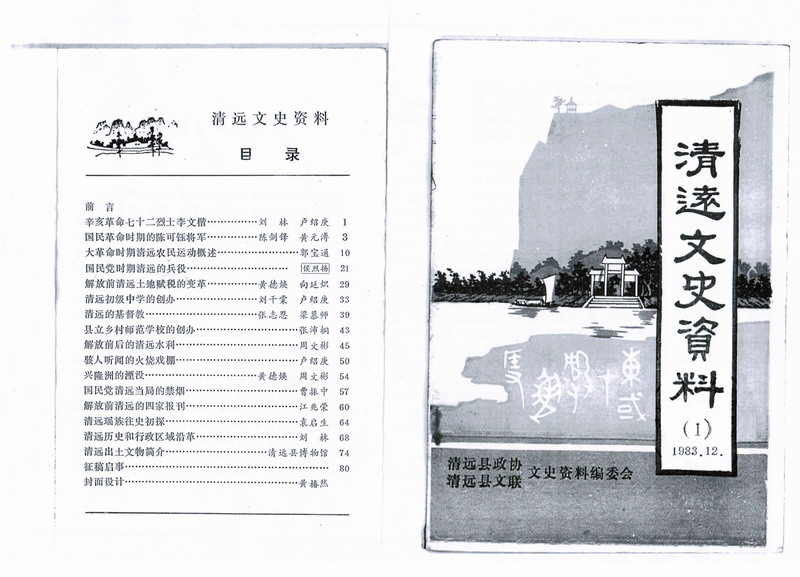 清远文史资料
目 录
前 言
辛亥革命七十二烈士李文楷⋯⋯⋯⋯刘 林 卢绍庚 1
国民革命时期的陈可钰将军⋯⋯⋯⋯陈剑锋 黄元溥 3
大革命时期清远农民运动概述⋯⋯⋯⋯郭宝通 10
国民党时期清远的兵役⋯⋯⋯⋯侯烈扬 21
解放前清远土地赋税的变革⋯⋯⋯⋯黄德焕 向延炽 29
清远初级中学的创办⋯⋯⋯⋯刘干棠 卢绍庚 33
清远的基督教⋯⋯⋯⋯张志恩 梁慕师 39
县立乡村师范学校的创办⋯⋯⋯⋯张沛炯 43
解放前后的清远水利⋯⋯⋯⋯周文彬 45
骇人听闻的火烧戏棚⋯⋯⋯⋯卢绍庚 50
兴隆洲的湮没⋯⋯⋯⋯黄德焕 周文彬 54
国民党清远当局的禁烟⋯⋯⋯⋯曹振中 57
解放前清远的四家报刊⋯⋯⋯⋯江兆荣 60
清远瑶族往史初探⋯⋯⋯⋯袁启生 64
清远历史和行政区域沿革⋯⋯⋯⋯刘 林 68
清远出土文物简介⋯⋯⋯⋯清远县博物馆 74
征稿启事⋯⋯⋯⋯ 80
封面设计⋯⋯⋯⋯黄椿然
清遠文史資料
(1)
1983.12.
清远县政协
清远县文联
文史资料编委会